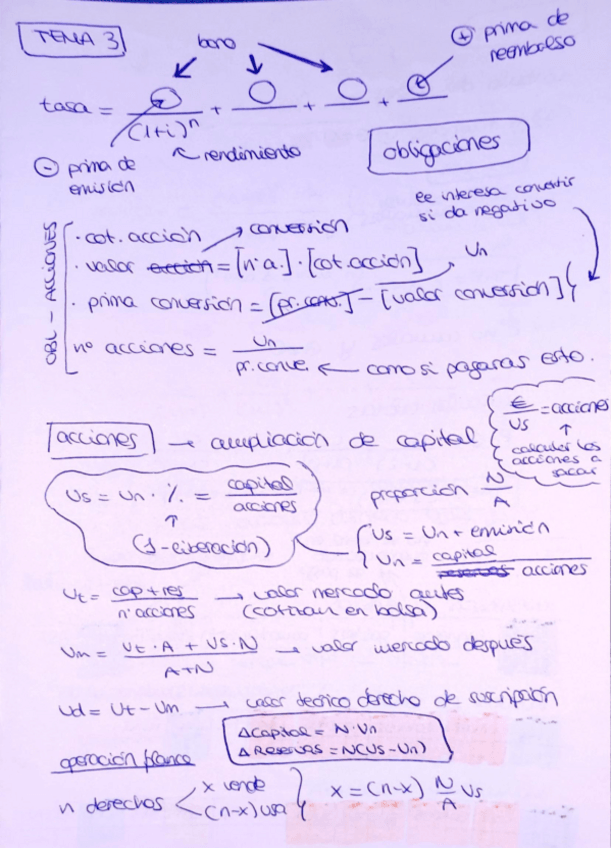 TEMA 3
bono
⊕ prima de reembolso
tasa = ◯/(1+i)ⁿ + ◯ + ◯ + ◯
← rendimiento
⊖ prima de emisión
obligaciones
le interesa convertir
si da negativo
OBL - ACCIONES
· cot. acción → conversión
· valor acción = [nº a.] · [cot. acción]
Un
· prima conversión = [pr. conv.] - [valor conversión]
nº acciones = Un / pr. conve. ← como si pagaras esto.
acciones → ampliación de capital
€/Us = acciones
↑
calcular las
acciones a
sacar
Us = Un · % = capital/acciones
↑
(1-liberación)
proporción N/A
Us = Un + emisión
Un = capital / reservas acciones
Ut = cap + res / nº acciones → valor mercado antes
(cotizan en bolsa)
Um = Ut · A + Us · N / A+N → valor mercado después
Ud = Ut - Um → valor teórico derecho de suscripción
Δ Capital = N · Un
Δ Reservas = N(Us - Un)
operación blanca
n derechos < x vende
(n-x) usa
x = (n-x) N/A Us